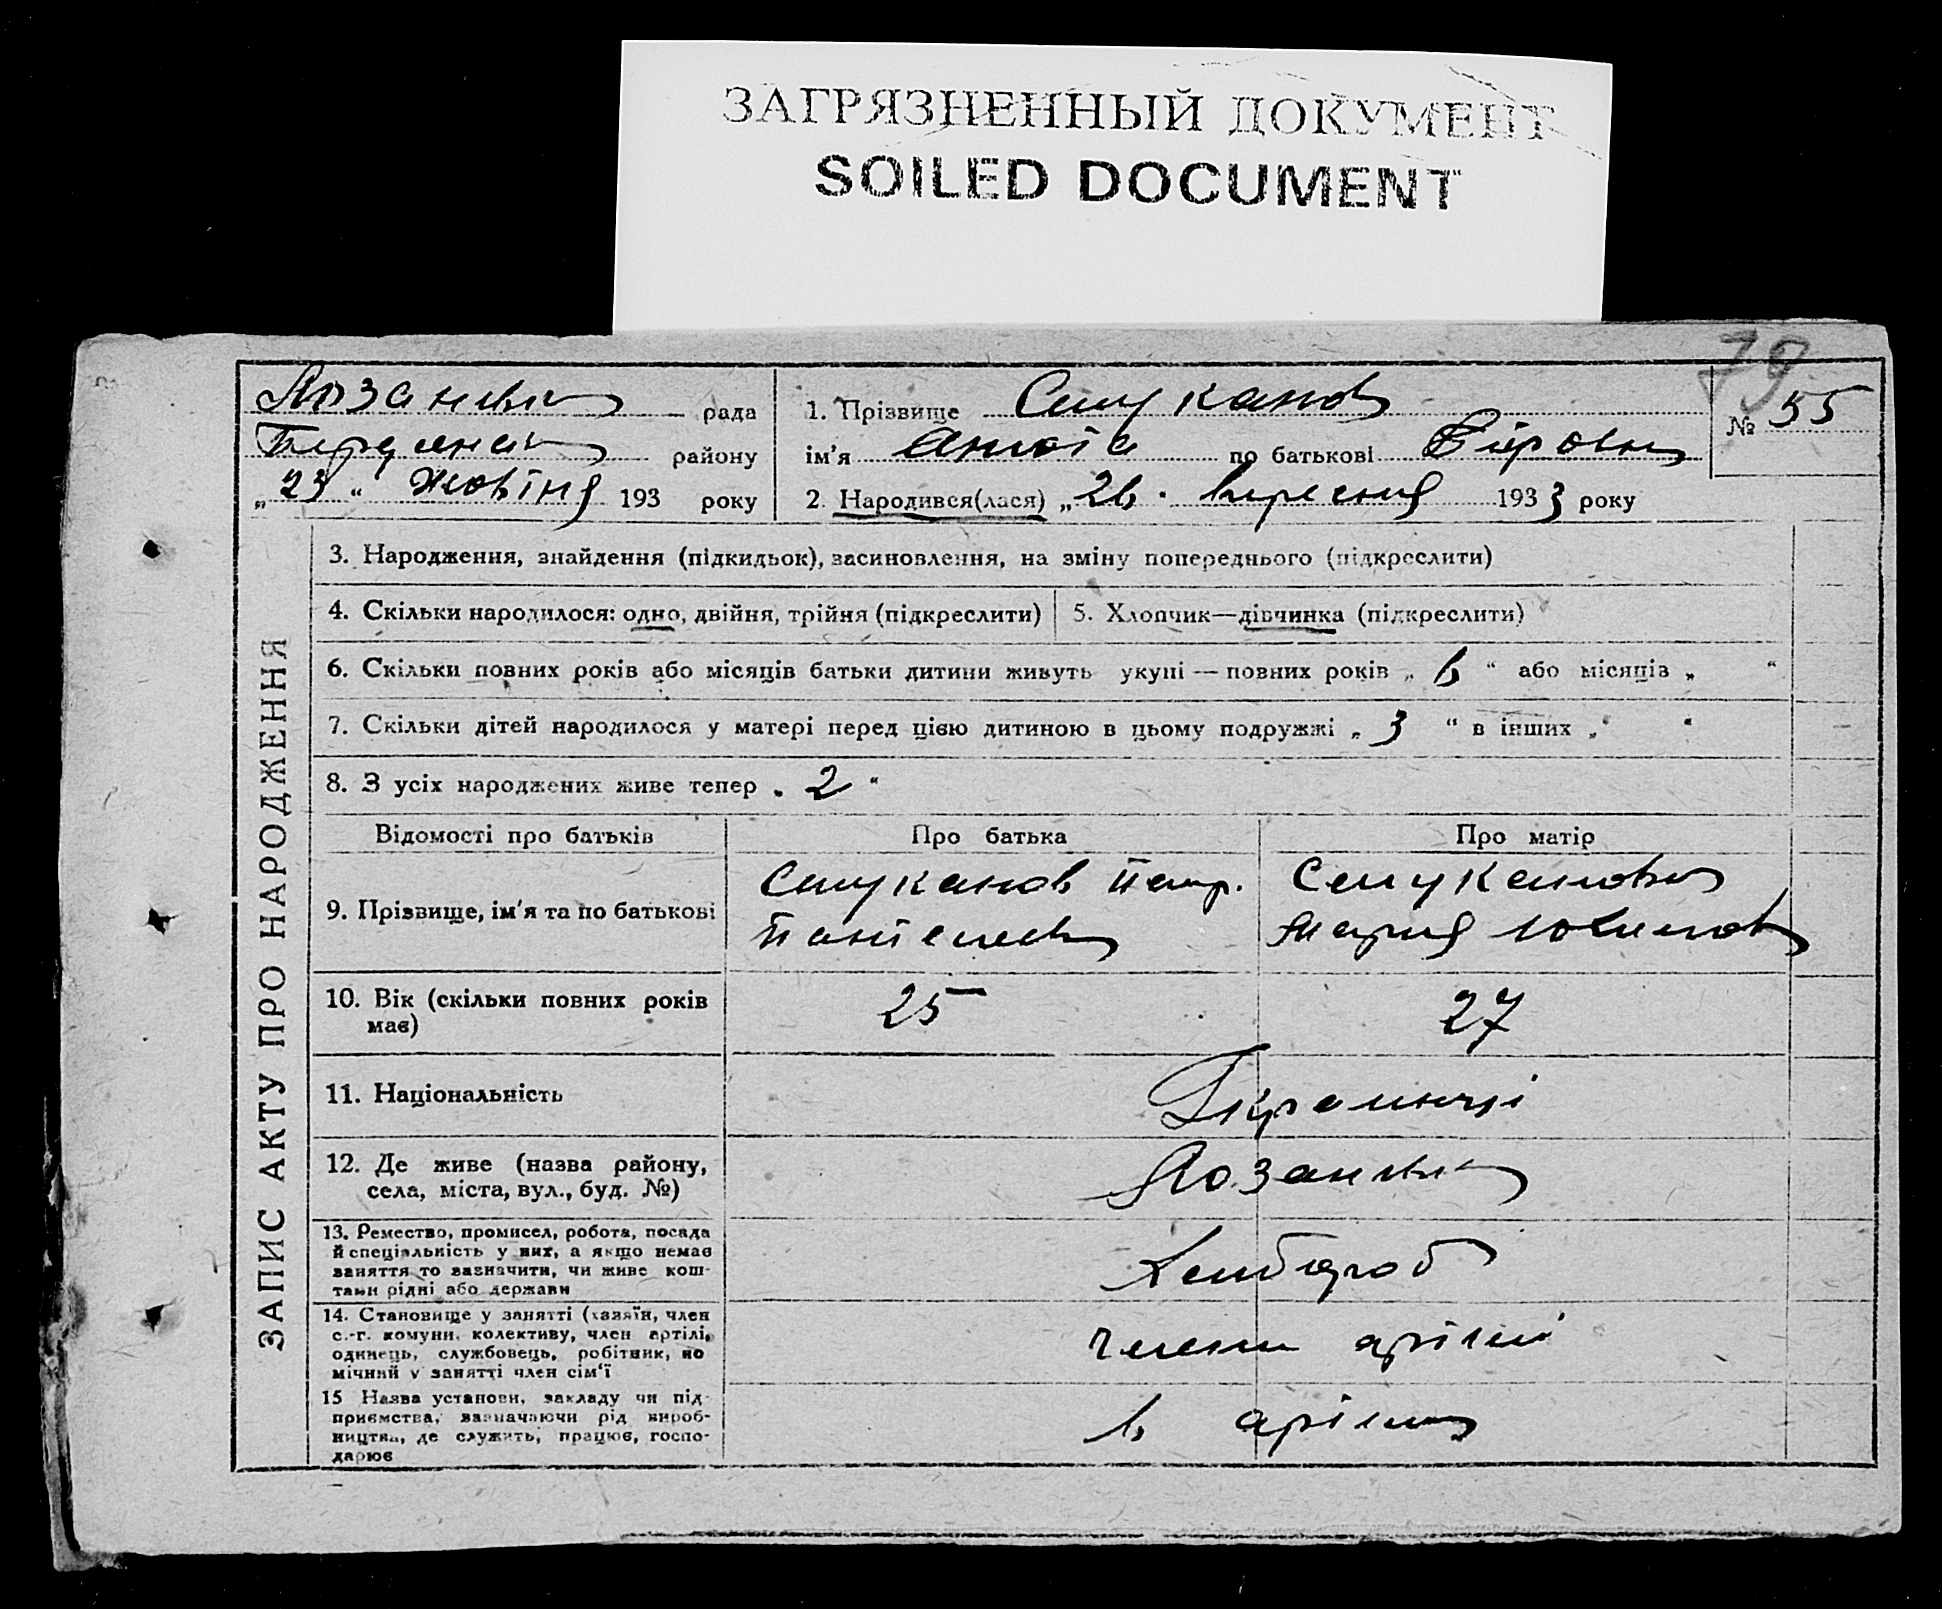 ЗАГРЯЗНЕННЫЙ ДОКУМЕНТ
SOILED DOCUMENT
79
рада
району
„23“ Жовтня 193 року
1. Прізвище
ім'я по батькові
2. Народився(лася) „26. вересня 1933 року
№ 55
ЗАПИС АКТУ ПРО НАРОДЖЕННЯ
3. Народження, знайдення (підкидьок), засиновлення, на зміну попереднього (підкреслити)
4. Скільки народилося: одно, двійня, трійня (підкреслити)
5. Хлопчик—дівчинка (підкреслити)
6. Скільки повних років або місяців батьки дитини живуть укупі — повних років „ 6 “ або місяців „ “
7. Скільки дітей народилося у матері перед цією дитиною в цьому подружжі „ 3 “ в інших „ “
8. З усіх народжених живе тепер „ 2 “
Відомості про батьків
Про батька
Про матір
9. Прізвище, ім'я та по батькові
Мария
10. Вік (скільки повних років
має)
25
27
11. Національність
Українці
12. Де живе (назва району,
села, міста, вул., буд. №)
13. Ремество, промисел, робота, посада
й спеціальність у них, а якщо немає
заняття то зазначити, чи живе кош-
тами рідні або держави
Хлібороб
14. Становище у занятті (хазяїн, член
с.-г. комуни, колективу, член артілі,
одинець, службовець, робітник, по
мічний у занятті член сім'ї
члени артілі
15 Назва установи, закладу чи під-
приємства, зазначаючи рід вироб-
ництва, де служить, працює, госпо-
дарює
в артілі